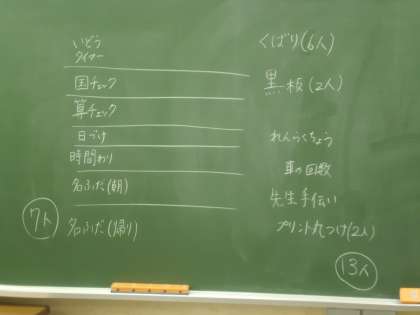 いどう
タイマー
国チェック
算チェック
日づけ
時間わり
名ふだ(朝)
名ふだ(帰り)
7人
くばり(6人)
黒板(2人)
れんらくちょう
車の回数
先生手伝い
プリント丸つけ(2人)
13人